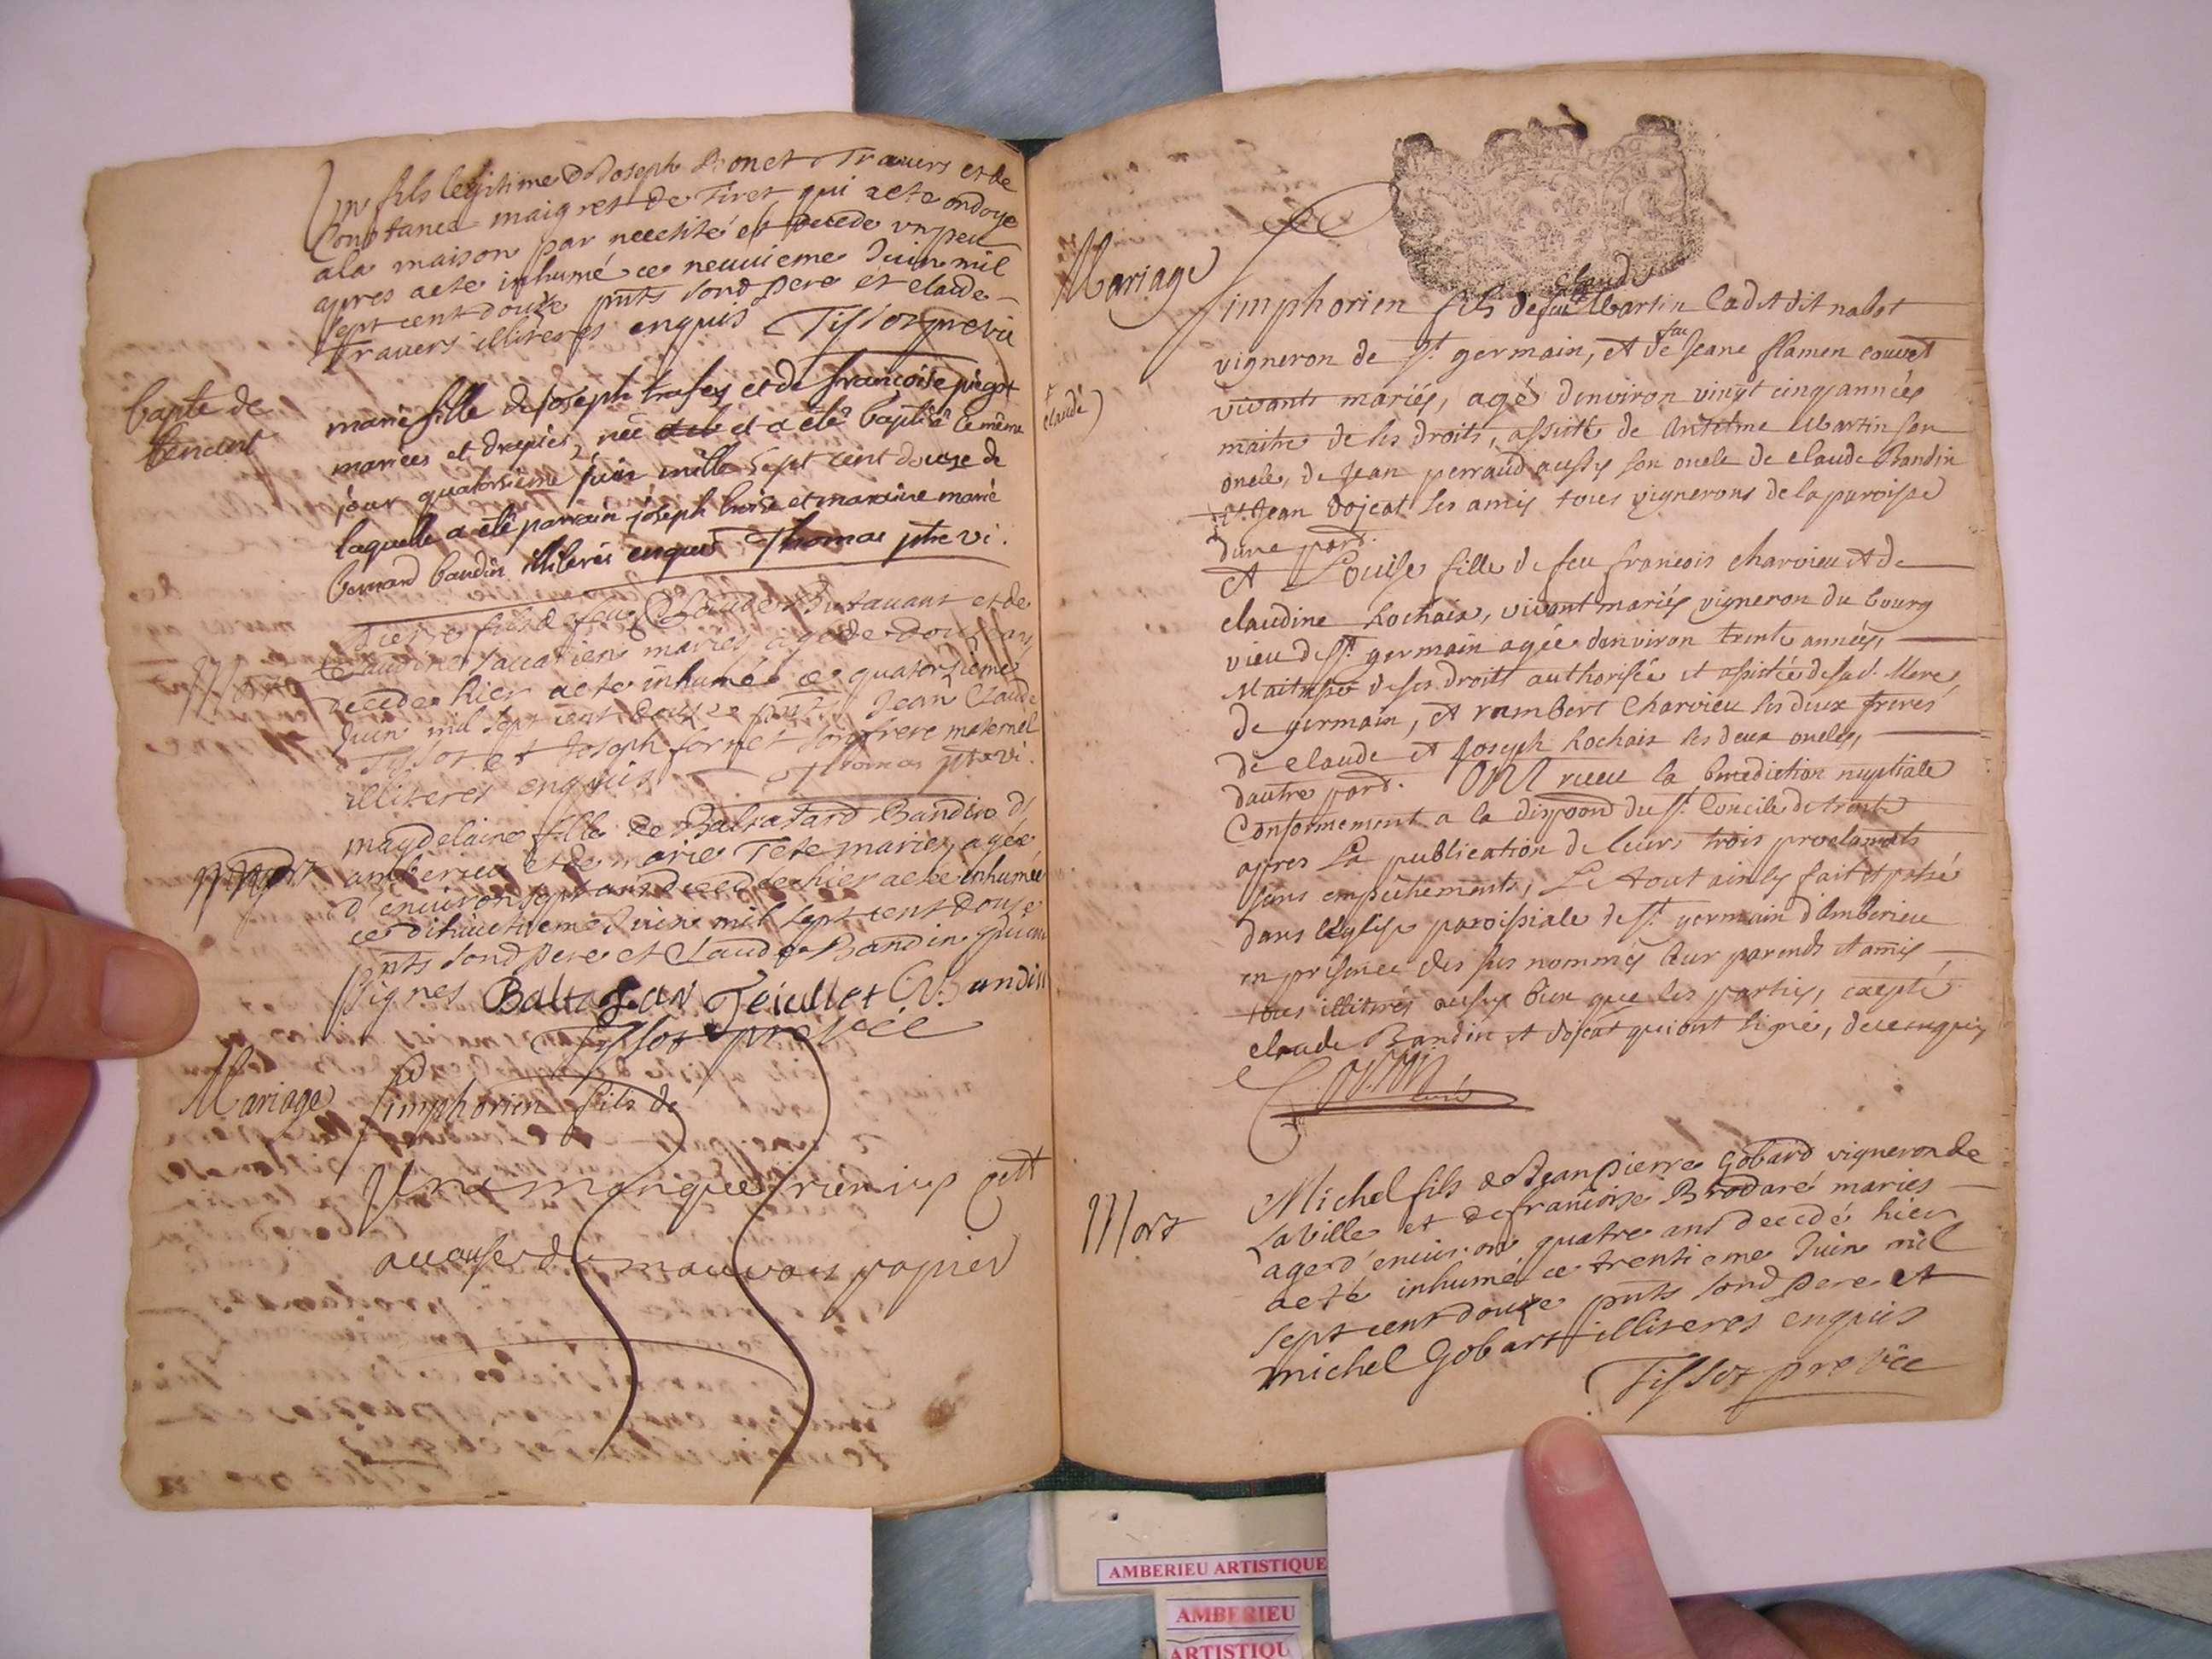 Un fils legitime de Joseph Bonet Travers et de
Constance maigret de Tiret qui a ete ondoye
a la maison par necessité et decede un peu
apres a ete inhumé ce neuvieme Juin mil
sept cent douze pnts sond pere et claude
Travers illiteres enquis Tissot pre vic
bapte de
tenent
marie fille de joseph trafey et de françoise pigot
mariées et drapier, née et a été baptisé le même
jour quatorsieme juin mille sept cent douze de
laquelle a été parrain joseph et maraine marie
bernard baudin illiterés enquis Thomas ptre vi.
Mort
pierre fils de feu Claude Butavant et de
Claudine Savarien mariez age de douze ans
decede hier a ete inhumé ce quatorsieme
Juin mil sept cent douze pnts Jean Claude
Tissot et Joseph fornet son frere maternel
illiteres enquis Thomas ptre vi.
Mort
magdelaine fille de Baltazard Bandin d'
amberieu et de marie Tete mariez agée
d'environ sept ans decedee hier a ete inhumée
ce dihuictieme Juin mil sept cent douze
pnts sond pere et Claude Bandin qui ont
signes Baltasar Teiallet C. Bandin
Tissot pre vic
Mariage
simphorien fils de
Il ne manque rien icy c'est
a cause du mauvais papier
Mariage
claude
simphorien fils de feu Martin Cadet dit nabot
vigneron de st. germain, et de feu Jeane flamen couvet
+
claude
vivants mariés, agé d'environ vingt cinq années
maitre de ses droits, assisté de Antelme Martin son
oncle, de Jean perraud aussy son oncle de claude Bandin
et Jean Dojcat ses amis tous vignerons de la paroisse
d'une part.
et Louise fille de feu francois charvieu et de
claudine Rochaix, vivant mariés vigneron du bourg
vieu de st. germain agée d'environ trente années,
Maitresse de ses droits authorisée et assistée de sad. Mere
de germain, et rambert Charvieu ses deux freres
de claude et Joseph Rochaix ses deux oncles,
d'autre part. Ont receu la benediction nuptiale
Conformement a la dispoon du st. Concile de trente
apres La publication de leurs trois proclamats
sans empêchements, Le tout ainsy fait et passé
dans l'église paroissiale de st. germain d'Amberieu
en presence des sus nommés leur parents et amis
tous illiterés aussy bien que les parties, excepté
claude Bandin et dojcat qui ont signé, de ce enquis,
curé
Mort
Michel fils de Jean pierre Gobard vigneron de
la ville et de francoise Brodaré mariés
age d'environ quatre ans decedé hier
a eté inhumé ce trentieme Juin mil
sept cent douze pnts sond pere et
michel Gobart illiteres enquis
Tissot pre vic
AMBERIEU ARTISTIQUE
AMBERIEU
ARTISTIQU